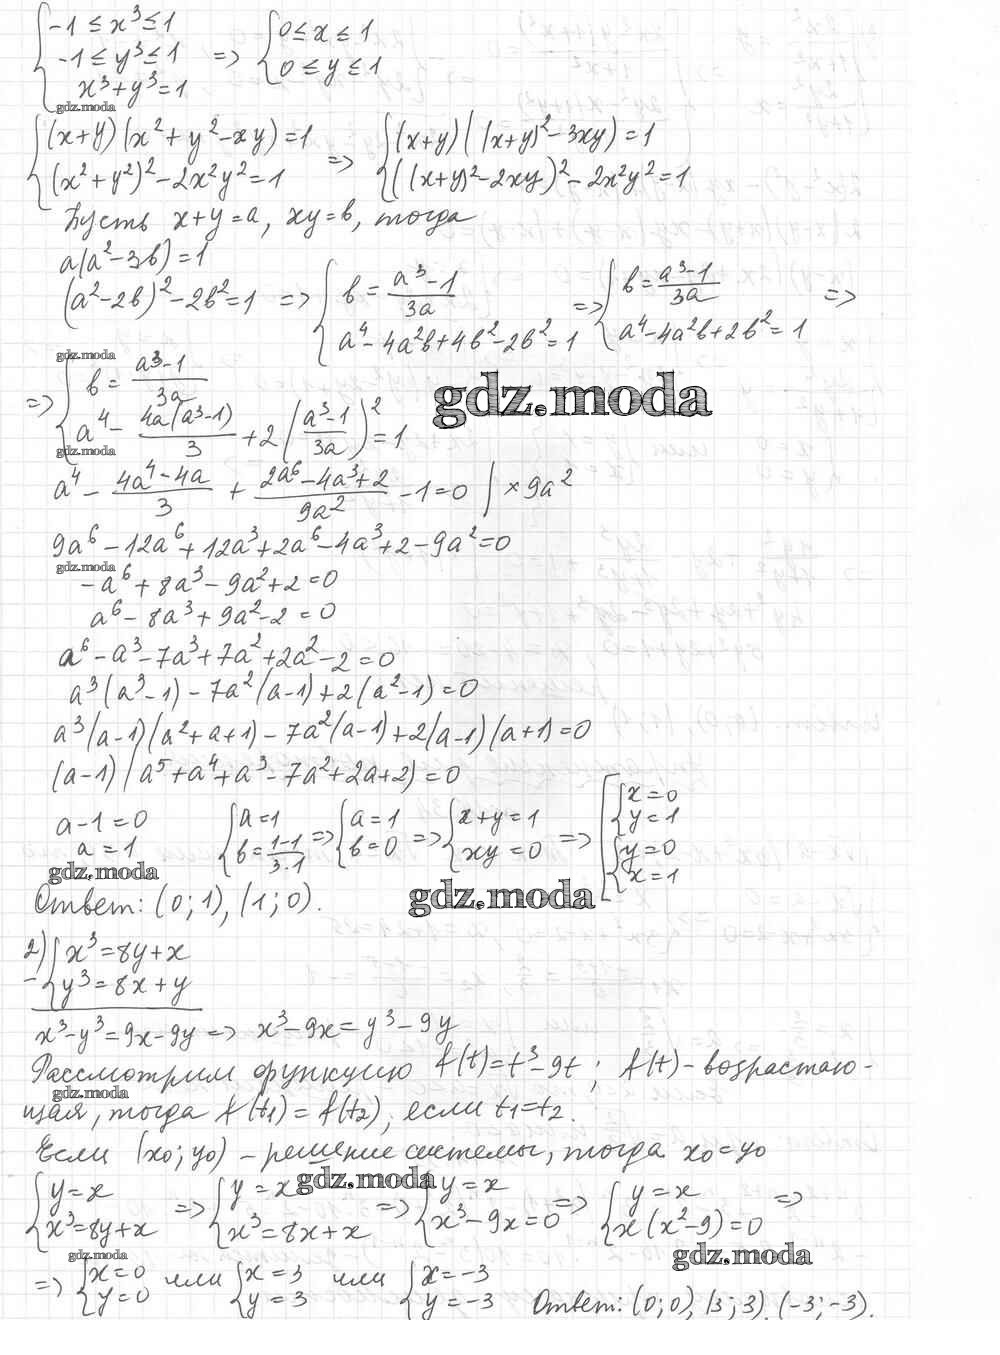 { -1 ≤ x³ ≤ 1
-1 ≤ y³ ≤ 1 => { 0 ≤ x ≤ 1
x³ + y³ = 1 0 ≤ y ≤ 1
gdz.moda
{ (x+y)(x²+y²-xy) = 1 => { (x+y)((x+y)²-3xy) = 1
(x²+y²)² - 2x²y² = 1 ((x+y)²-2xy)² - 2x²y² = 1
Пусть x+y = a, xy = b, тогда
a(a²-3b) = 1
(a²-2b)² - 2b² = 1 => { b = (a³-1)/3a => { b = (a³-1)/3a =>
a⁴ - 4a²b + 4b² - 2b² = 1 a⁴ - 4a²b + 2b² = 1
gdz.moda
=> { b = (a³-1)/3a
gdz.moda
a⁴ - 4a(a³-1)/3 + 2((a³-1)/3a)² = 1
gdz.moda
a⁴ - (4a⁴-4a)/3 + (2a⁶-4a³+2)/9a² - 1 = 0 | × 9a²
9a⁶ - 12a⁶ + 12a³ + 2a⁶ - 4a³ + 2 - 9a² = 0
gdz.moda
-a⁶ + 8a³ - 9a² + 2 = 0
a⁶ - 8a³ + 9a² - 2 = 0
a⁶ - a³ - 7a³ + 7a² + 2a² - 2 = 0
a³(a³-1) - 7a²(a-1) + 2(a²-1) = 0
a³(a-1)(a²+a+1) - 7a²(a-1) + 2(a-1)(a+1) = 0
(a-1)(a⁵+a⁴+a³-7a²+2a+2) = 0
a-1 = 0 { a = 1 => { a = 1 => { x+y = 1 => [ { x = 0
a = 1 b = (1-1)/(3·1) b = 0 xy = 0 y = 1
{ y = 0
x = 1
gdz.moda
gdz.moda
Ответ: (0; 1), (1; 0).
2) { x³ = 8y + x
- y³ = 8x + y
x³ - y³ = 9x - 9y => x³ - 9x = y³ - 9y
Рассмотрим функцию f(t) = t³ - 9t; f(t) - возрастаю-
gdz.moda
щая, тогда f(t₁) = f(t₂), если t₁ = t₂.
Если (x₀; y₀) - решение системы, тогда x₀ = y₀
gdz.moda
{ y = x => { y = x => { y = x => { y = x =>
x³ = 8y + x x³ = 8x + x x³ - 9x = 0 x(x²-9) = 0
gdz.moda
gdz.moda
=> { x = 0 или { x = 3 или { x = -3
y = 0 y = 3 y = -3 Ответ: (0; 0), (3; 3), (-3; -3).